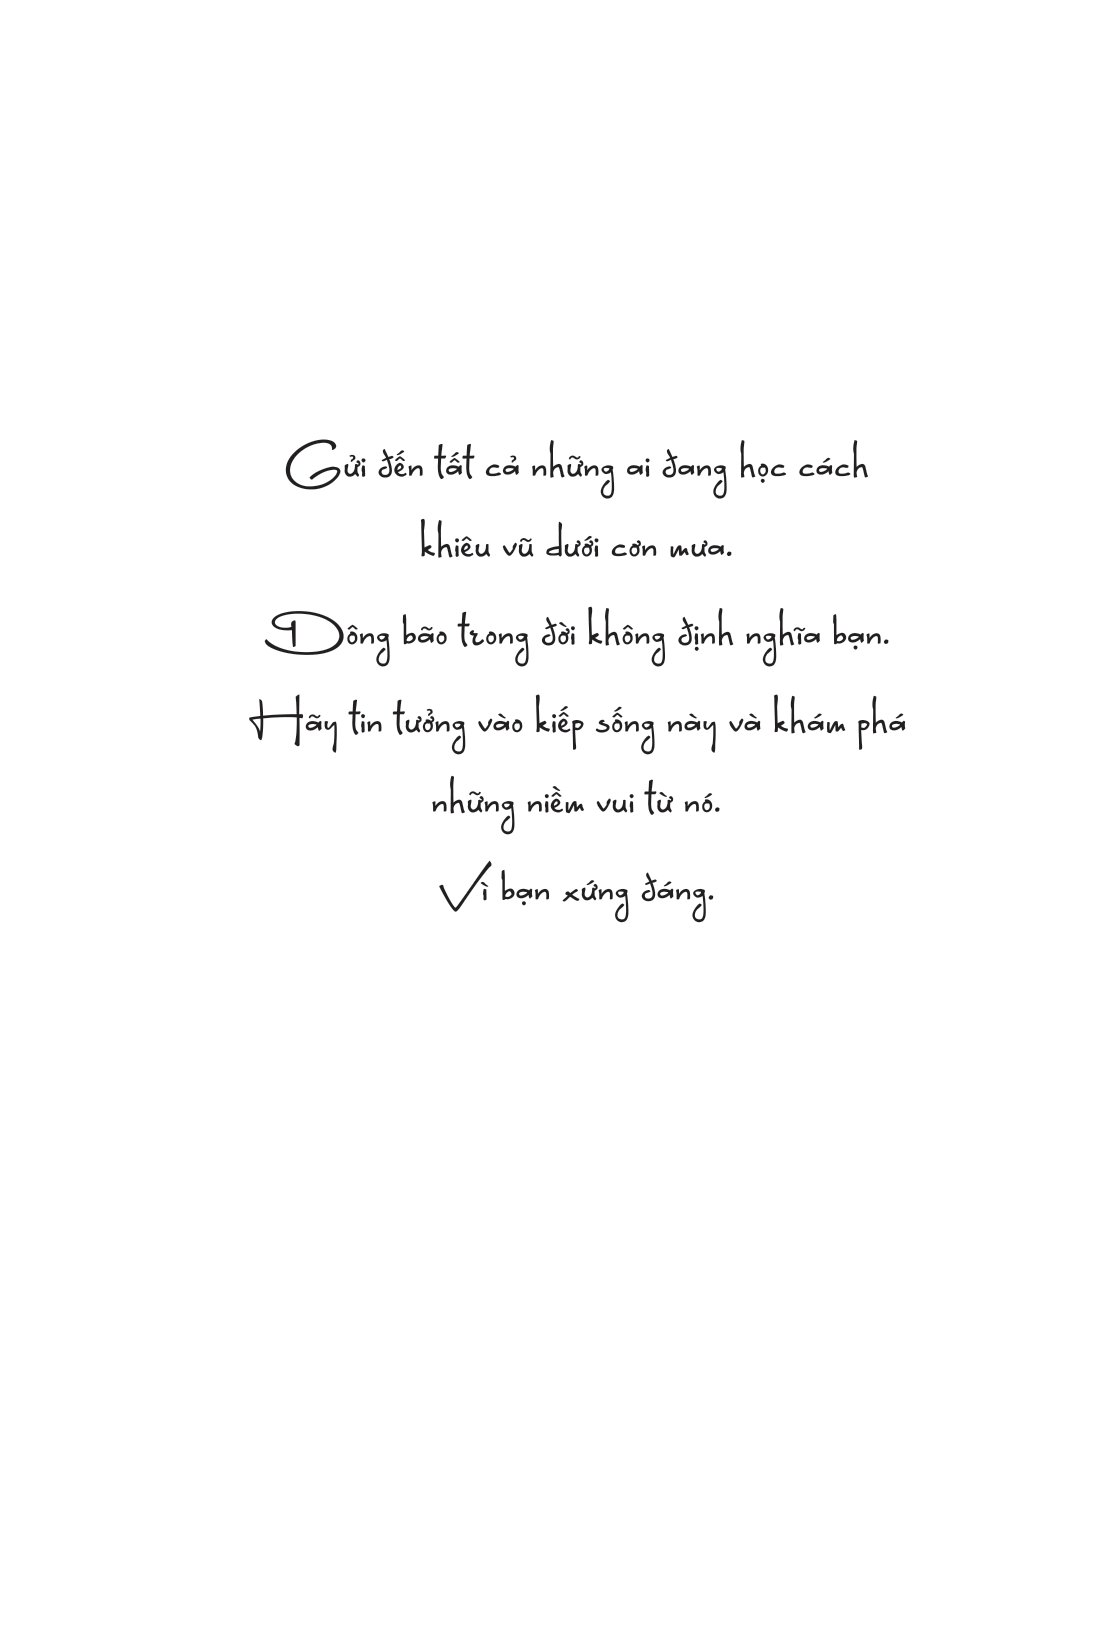 Gửi đến tất cả những ai đang học cách
khiêu vũ dưới cơn mưa.
Dông bão trong đời không định nghĩa bạn.
Hãy tin tưởng vào kiếp sống này và khám phá
những niềm vui từ nó.
Vì bạn xứng đáng.